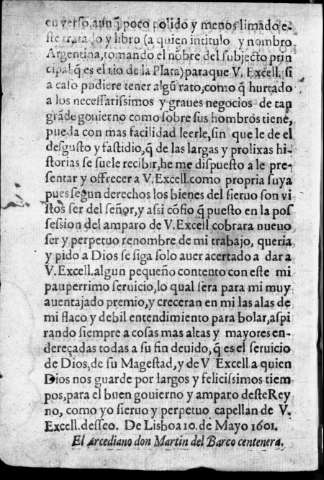 en verso, aun q̃ poco polido y menos limado e-
ste tratado y libro (a quien intitulo y nombro
Argentina, tomando el nõbre del subjecto prin
cipal q̃ es el rio de la Plata) paraque V. Excell. si
a caso pudiere tener algũ rato, como q̃ hurtado
a los necessarissimos y graues negocios de tan
grãde gouierno como sobre sus hombros tiene,
pueda con mas facilidad leerle, sin que le de el
desgusto y fastidio, q̃ de las largas y prolixas hi-
storias se suele recibir, he me dispuesto a le pre-
sentar y offrecer a V. Excell. como propria suya
pues segun derechos los bienes del sieruo son vi
stos ser del señor, y assi cõfio q̃ puesto en la pos
session del amparo de V. Excell cobrara nueuo
ser y perpetuo renombre de mi trabajo, queria
y pido a Dios se siga solo auer acertado a dar a
V. Excell. algun pequeño contento con este mi
pauperrimo seruicio, lo qual sera para mi muy
auentajado premio, y creceran en mi las alas de
mi flaco y debil entendimiento para bolar, aspi
rando siempre a cosas mas altas y mayores en-
dereçadas todas a su fin deuido, q̃ es el seruicio
de Dios, de su Magestad, y de V Excell a quien
Dios nos guarde por largos y felicissimos tiem
pos, para el buen gouierno y amparo deste Rey
no, como yo sieruo y perpetuo capellan de V.
Excell. desseo. De Lisboa 10. de Mayo 1601.
El Arcediano don Martin del Barco centenera.